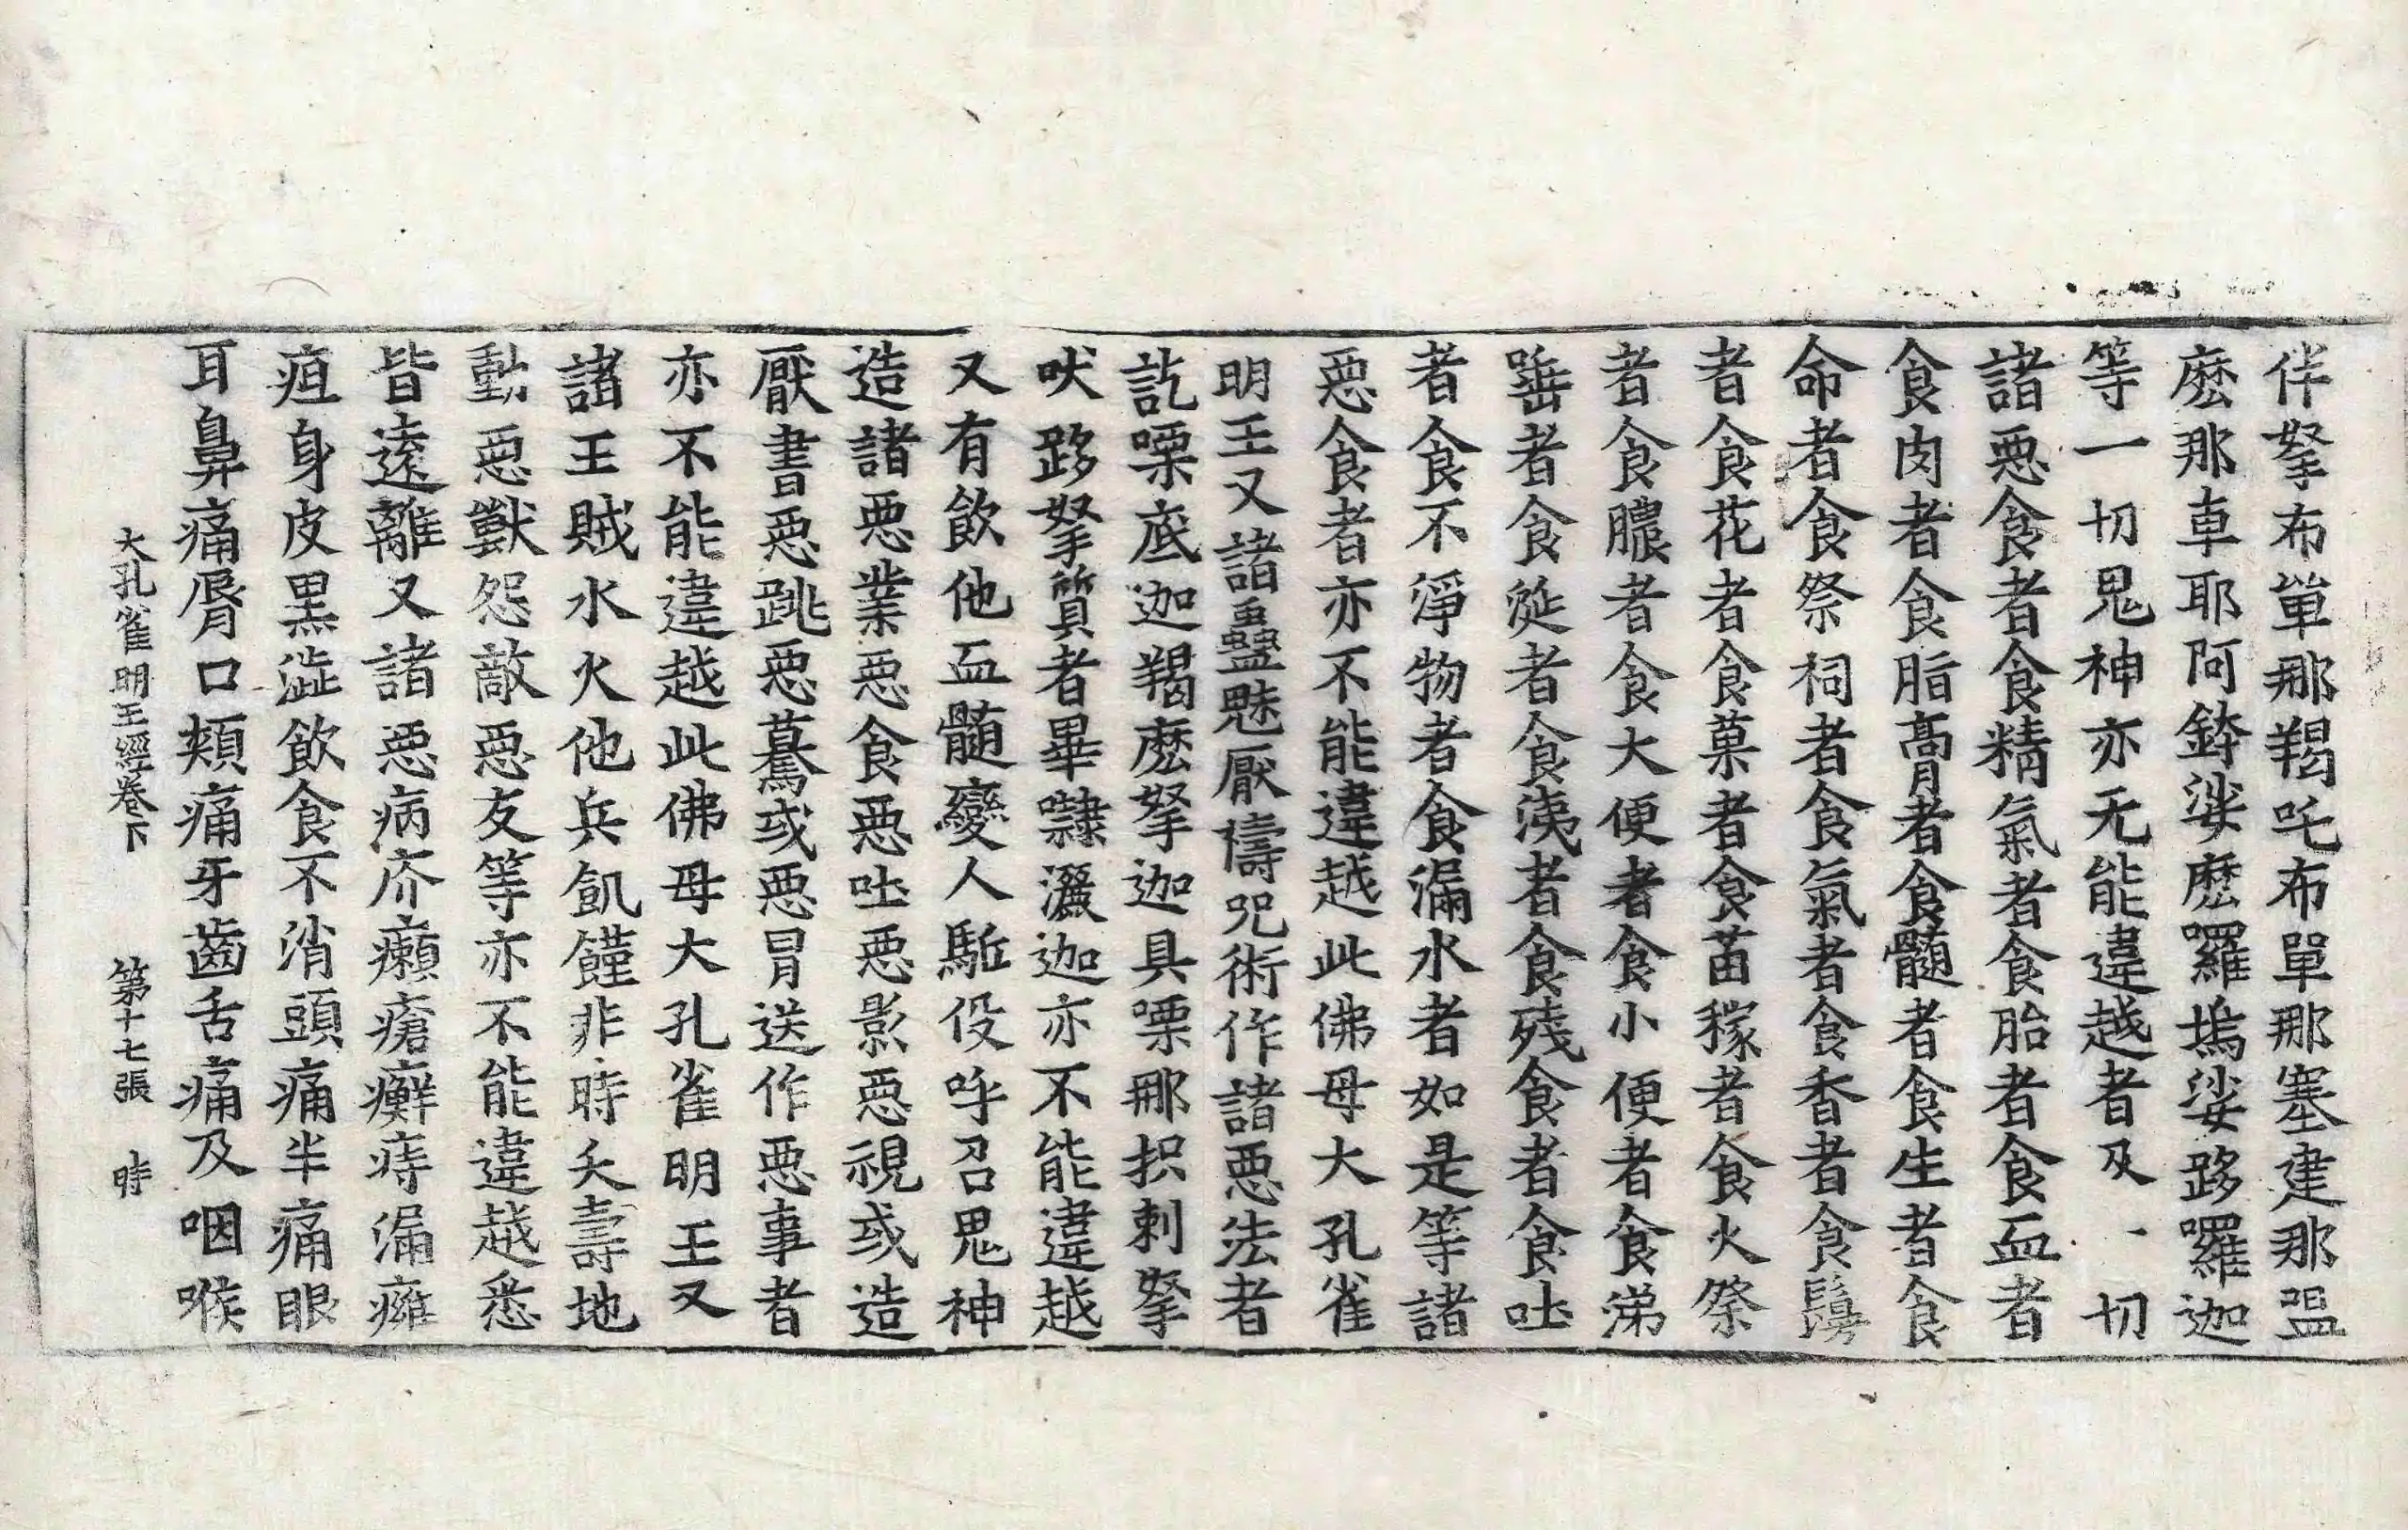 伴拏布單那羯吒布單那塞建那嗢
麽那車耶阿鉢娑麽囉塢娑跢囉迦
等一切鬼神亦无能違越者及一切
諸惡食者食精氣者食胎者食血者
食肉者食脂膏者食髓者食生者食
命者食祭祠者食氣者食香者食鬘
者食花者食菓者食苗稼者食火祭
者食膿者食大便者食小便者食涕
唾者食涎者食洟者食殘食者食吐
者食不淨物者食漏水者如是等諸
惡食者亦不能違越此佛母大孔雀
明王又諸蠱魅厭禱呪術作諸惡法者
訖㗚底迦羯麽拏迦具㗚那抧剌拏
吠跢拏質者畢隸灑迦亦不能違越
又有飲他血髓變人駈役呼召鬼神
造諸惡業惡食惡吐惡影惡視或造
厭書惡跳惡驀或惡冐送作惡事者
亦不能違越此佛母大孔雀明王又
諸王賊水火他兵飢饉非時夭壽地
動惡獸怨敵惡友等亦不能違越悉
皆遠離又諸惡病疥癩瘡癬痔漏癰
疽身皮黑澁飲食不消頭痛半痛眼
耳鼻痛脣口頰痛牙齒舌痛及咽喉
大孔雀明王經卷下 第十七張 時